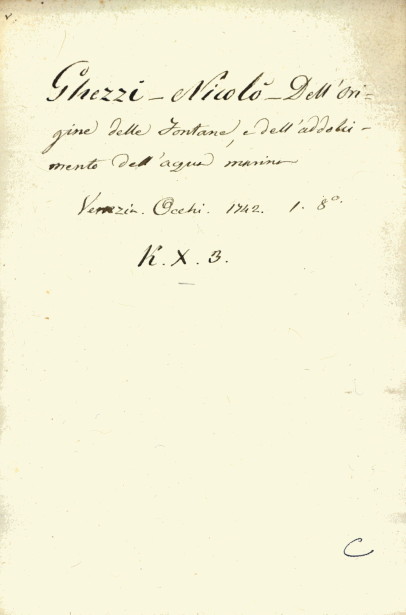 Ghezzi - Nicolò - Dell'ori-
gine delle Fontane, e dell'addolci-
mento dell'acqua marina
Venezia. Occhi. 1742. 1. 8°.
K. X. 3.
C